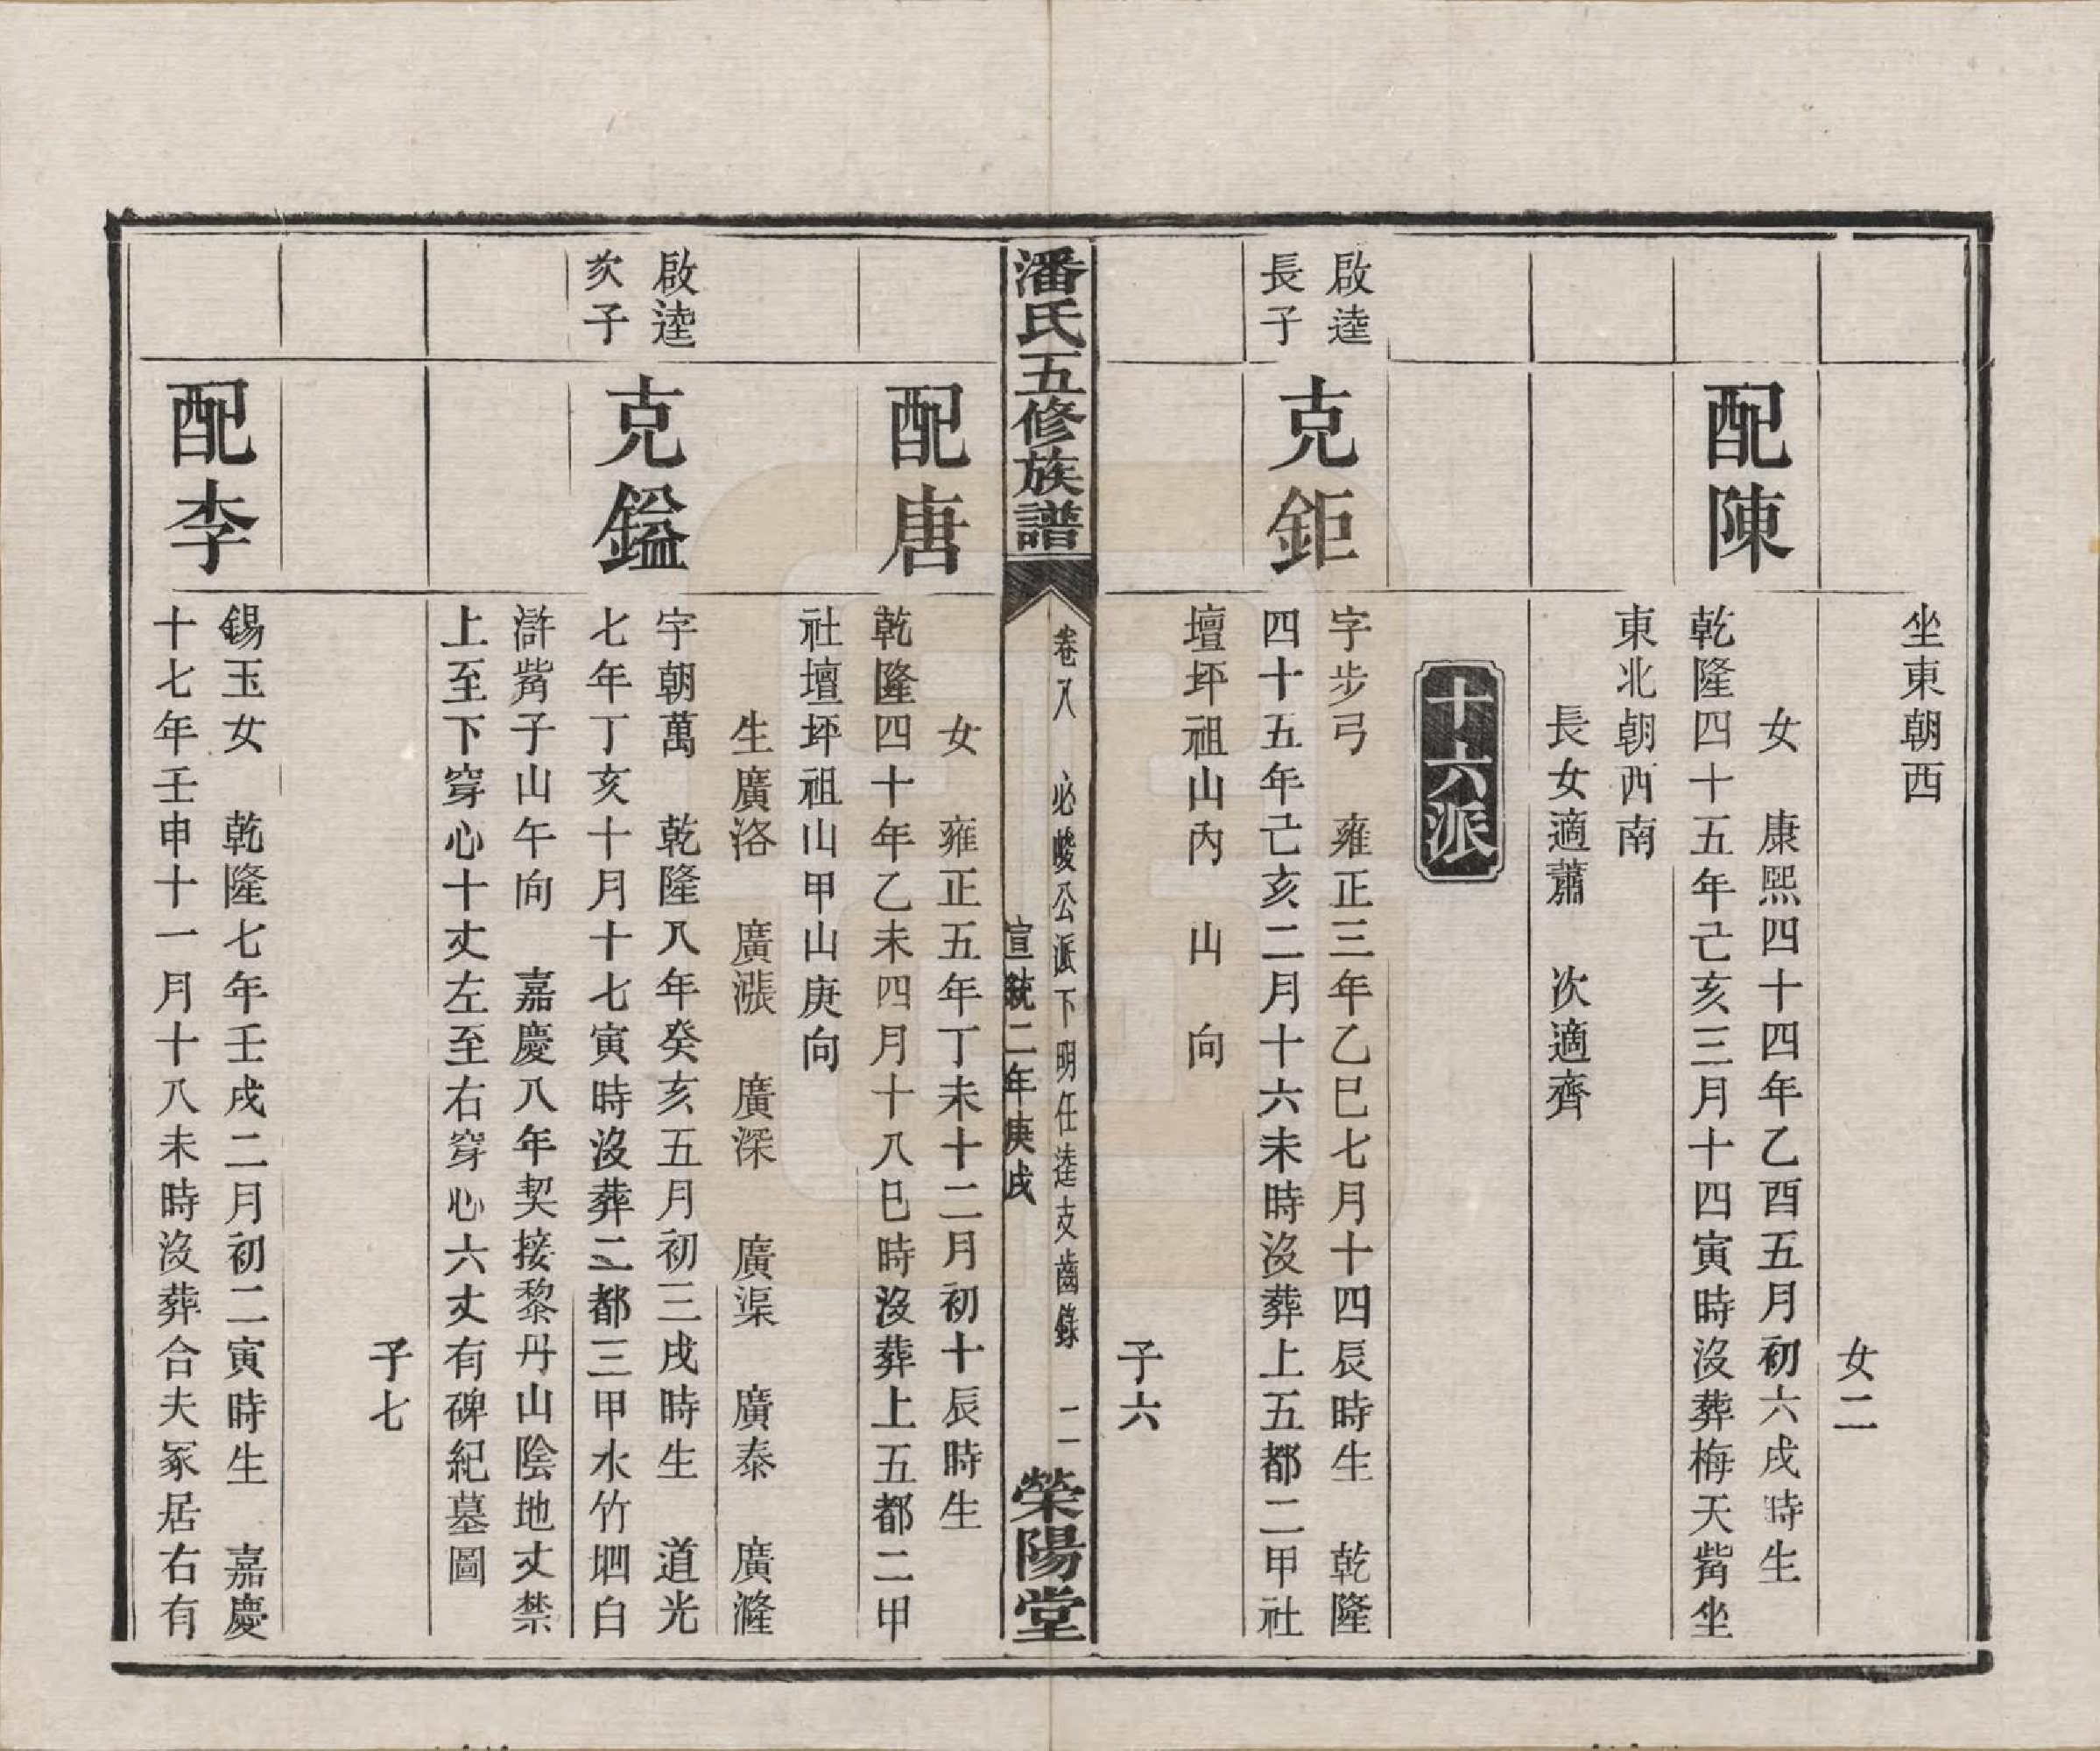 坐東朝西
女二
配陳
女　康熙四十四年乙酉五月初六戌時生
乾隆四十五年己亥三月十四寅時沒葬梅天觜坐
東北朝西南
長女適蕭　次適齊
十六派
啟逵
長子
克鉅
字步弓　雍正三年乙巳七月十四辰時生　乾隆
四十五年己亥二月十六未時沒葬上五都二甲社
壇坪祖山內　山　向
子六
潘氏五修族譜
卷八　必峻公派下明任逵支齒錄　二
宣統二年庚戌
榮陽堂
配唐
女　雍正五年丁未十二月初十辰時生
乾隆四十年乙未四月十八巳時沒葬上五都二甲
社壇坪祖山甲山庚向
生廣洛　廣漲　廣深　廣渠　廣泰　廣漋
啟逵
次子
克鎰
字朝萬　乾隆八年癸亥五月初三戌時生　道光
七年丁亥十月十七寅時沒葬二都三甲水竹垇白
滸觜子山午向　嘉慶八年契接黎丹山陰地丈禁
上至下穿心十丈左至右穿心六丈有碑紀墓圖
子七
配李
錫玉女　乾隆七年壬戌二月初二寅時生　嘉慶
十七年壬申十一月十八未時沒葬合夫冢居右有